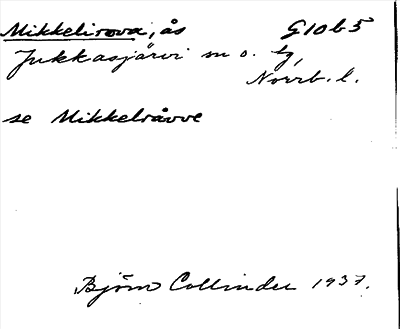 Mikkelirova, ås G10b5
Jukkasjärvi sn o. tg,
Norrb. l.
se Mikkelråvve
Björn Collinder 1937.